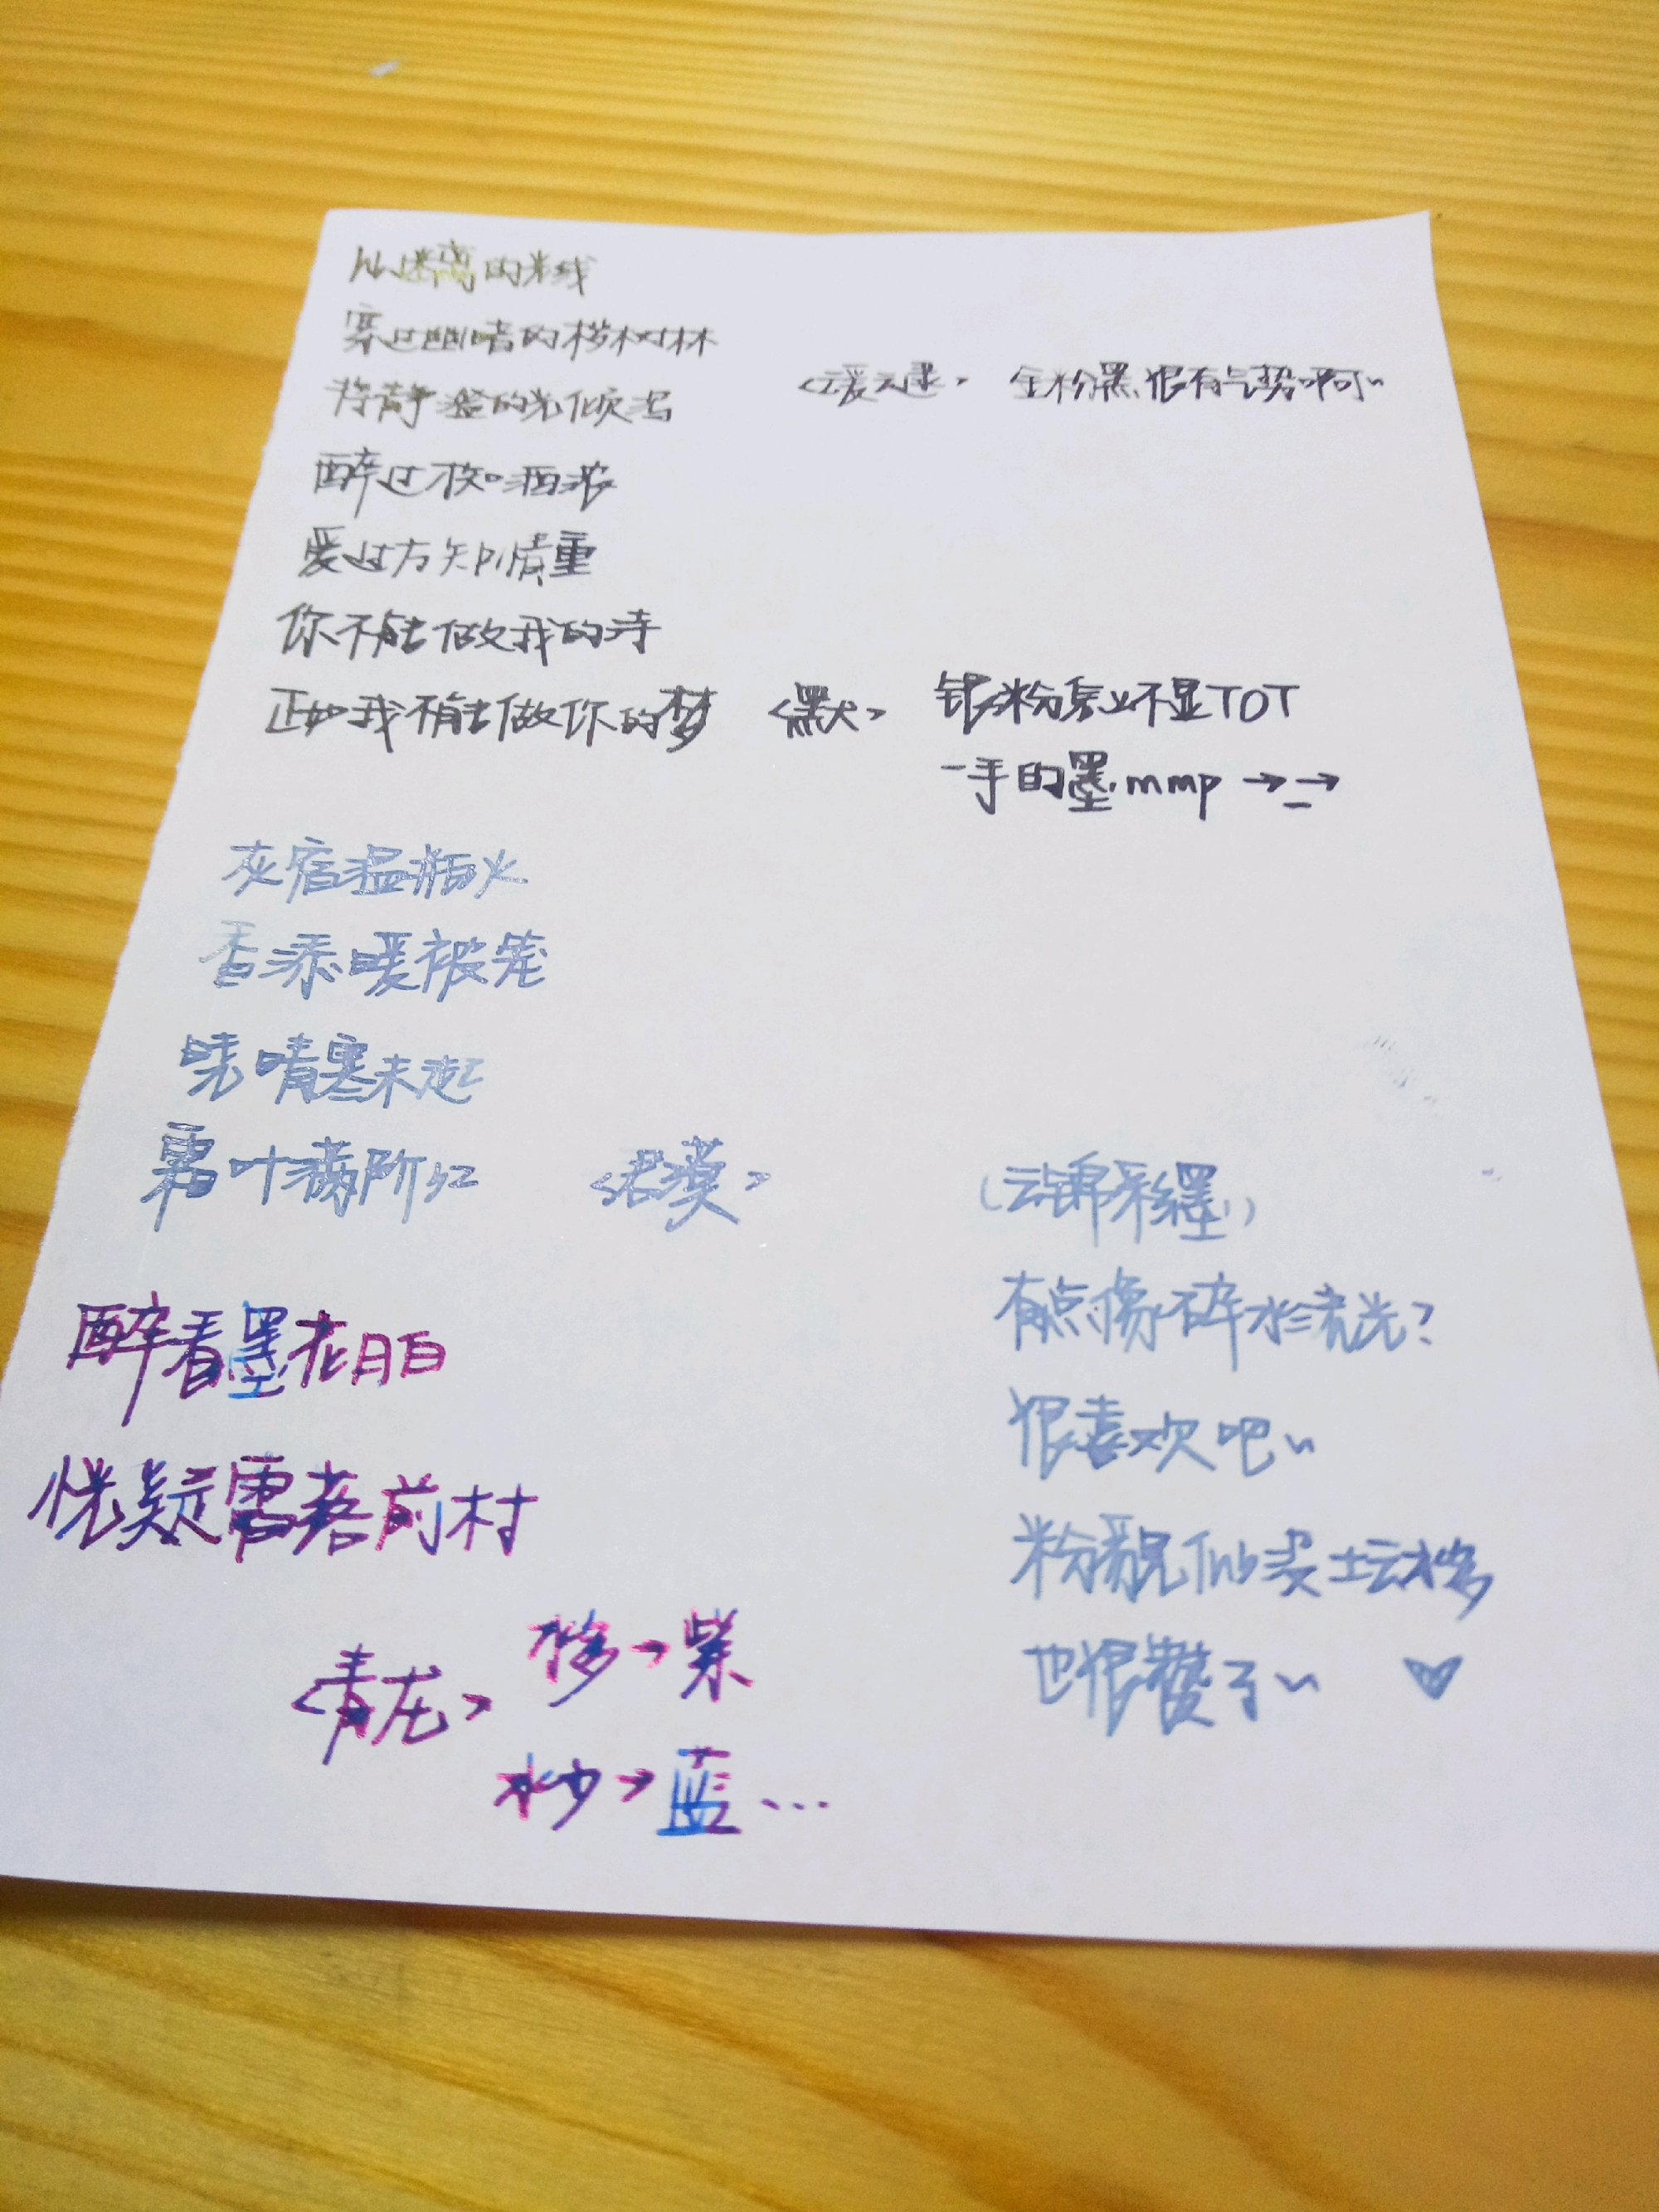 从迷离的光线
穿过幽暗的桫树林
将静谧的光倾泻
<叆叇> 金粉黑很有气势啊~
醉过才知酒浓
爱过方知情重
你不能做我的诗
正如我不能做你的梦 <默> 银粉真业不显TOT
一手的墨mmp →_→
灰宿温瓶火
香添暖被笼
晓晴寒未起
霜叶满阶红 <君漠>
(云锦彩繹墨)
有点像碎冰流光?
很喜欢吧~
粉貌似要坛移
也很赞了~ ♥
醉看墨花月白
恍疑雪落前村
<青龙>
移→紫
抄→蓝...